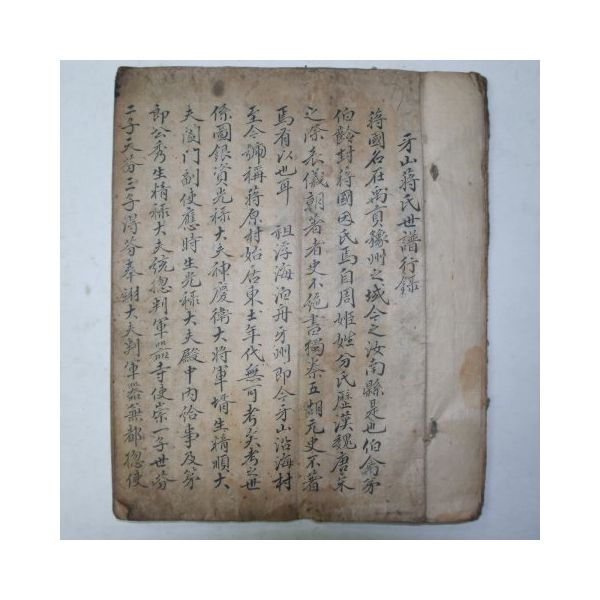 牙山蔣氏世譜行錄
蔣國名在禹貢豫州之域今之汝南縣是也伯禽第
伯齡封蔣國因氏焉自周姬姓分氏歷漢魏唐宋
之際名儀朝著者史不絕書獨秦五胡元史不著
焉有以也耳 祖浮海泊舟牙州即今牙山沿海村
至今號稱蔣原村始居東土年代無可考矣考之世
係圖銀資光祿大夫神慶衛大將軍壻生精順大
夫閤門副使應時生光祿大夫殿中內給事及第
郎公秀生精祿大夫 摠判軍器寺使崇一子世芬
二子天芬三子得芬奉翊大夫判軍器兼都摠使